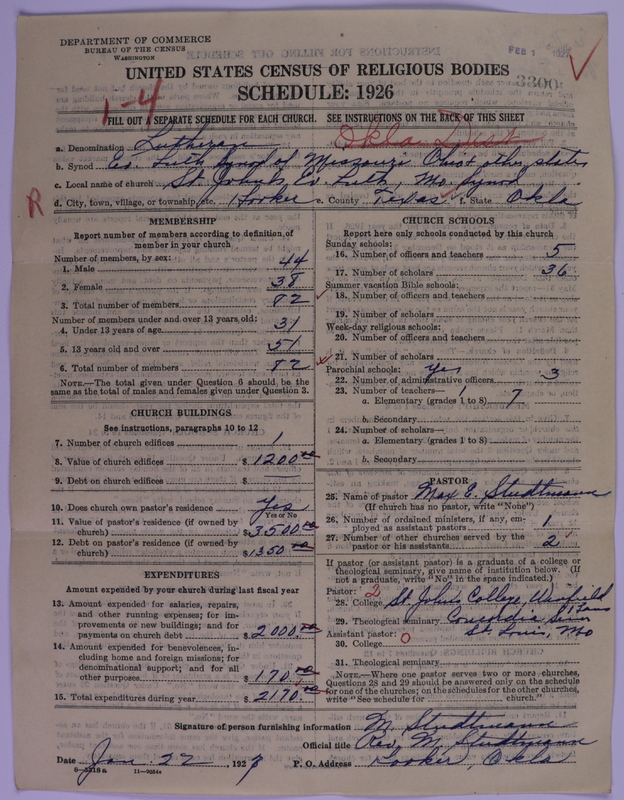 DEPARTMENT OF COMMERCE
BUREAU OF THE CENSUS
WASHINGTON
FEB 1
3300
UNITED STATES CENSUS OF RELIGIOUS BODIES
SCHEDULE: 1926
1-4
FILL OUT A SEPARATE SCHEDULE FOR EACH CHURCH. SEE INSTRUCTIONS ON THE BACK OF THIS SHEET
Okla Dist
a. Denomination Lutheran
b. Synod Ev. Luth Synod of Missouri Ohio & other states
c. Local name of church St. John's Ev. Luth, Mo. Synod
R
d. City, town, village, or township, etc. Hooker e. County Texas f. State Okla
MEMBERSHIP
Report number of members according to definition of
member in your church
Number of members, by sex:
1. Male 44
2. Female 38
3. Total number of members 82
Number of members under and over 13 years old:
4. Under 13 years of age 31
5. 13 years old and over 51
6. Total number of members 82
NOTE.—The total given under Question 6 should be the
same as the total of males and females given under Question 3.
CHURCH BUILDINGS
See instructions, paragraphs 10 to 12
7. Number of church edifices 1
8. Value of church edifices $ 1200.00
9. Debt on church edifices $ —
10. Does church own pastor's residence Yes
Yes or No
11. Value of pastor's residence (if owned by
church) $ 3500.00
12. Debt on pastor's residence (if owned by
church) $ 1350.00
EXPENDITURES
Amount expended by your church during last fiscal year
13. Amount expended for salaries, repairs,
and other running expenses; for im-
provements or new buildings; and for
payments on church debt $ 2000.00
14. Amount expended for benevolences, in-
cluding home and foreign missions; for
denominational support; and for all
other purposes $ 170.00
15. Total expenditures during year $ 2170.00
CHURCH SCHOOLS
Report here only schools conducted by this church
Sunday schools:
16. Number of officers and teachers 5
17. Number of scholars 36
Summer vacation Bible schools:
18. Number of officers and teachers
19. Number of scholars
Week-day religious schools:
20. Number of officers and teachers
21. Number of scholars
Parochial schools: Yes
22. Number of administrative officers 3
23. Number of teachers—
a. Elementary (grades 1 to 8) 7
b. Secondary
24. Number of scholars—
a. Elementary (grades 1 to 8)
b. Secondary
PASTOR
25. Name of pastor Max E. Studtmann
(If church has no pastor, write "None")
26. Number of ordained ministers, if any, em-
ployed as assistant pastors 1
27. Number of other churches served by the
pastor or his assistants 2
If pastor (or assistant pastor) is a graduate of a college or
theological seminary, give name of institution below. (If
not a graduate, write "No" in the space indicated.)
Pastor: 2
28. College St. John's College, Winfield
Kans
29. Theological seminary Concordia Sem
St. Louis, Mo
Assistant pastor: 0
30. College
31. Theological seminary
NOTE.—Where one pastor serves two or more churches,
Questions 28 and 29 should be answered only on the schedule
for one of the churches; on the schedules for the other churches,
write "See schedule for church."
Signature of person furnishing information M. Studtmann
Official title Rev. M. Studtmann
Date Jan. 22, 1927 P. O. Address Hooker, Okla
8—5218a 11—9664